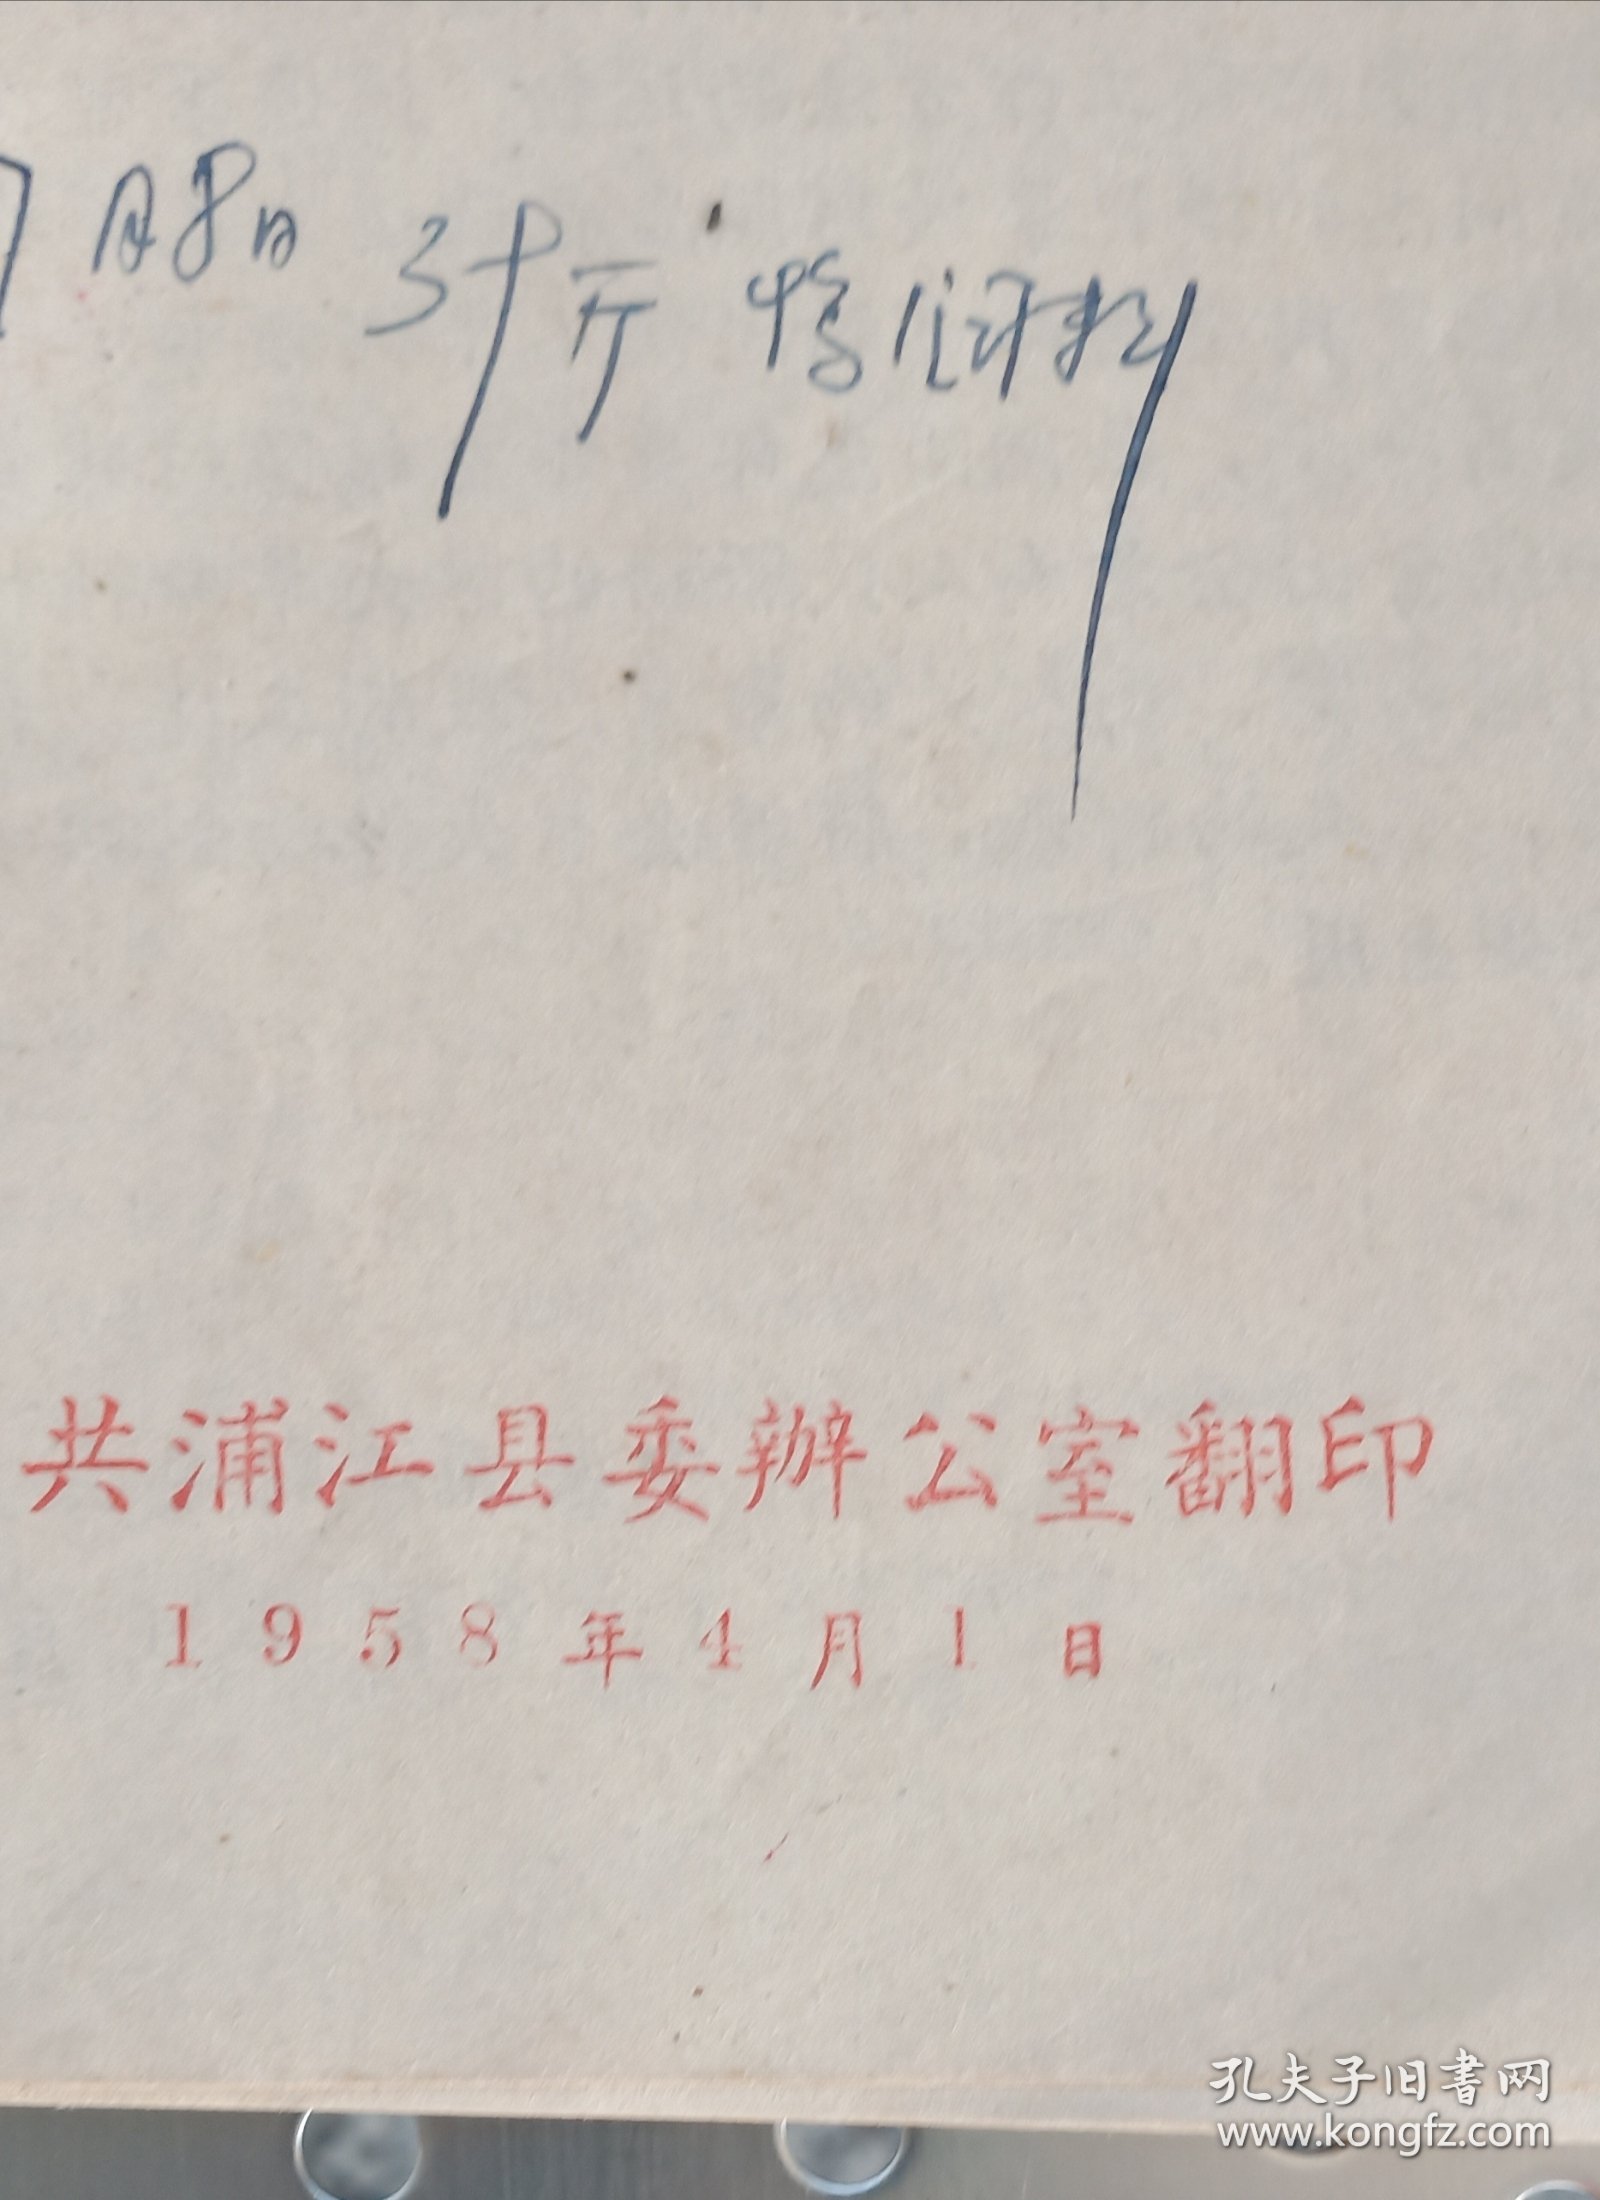 月8日
共浦江县委辦公室翻印
1958年4月1日
孔夫子旧書网
www.kongfz.com